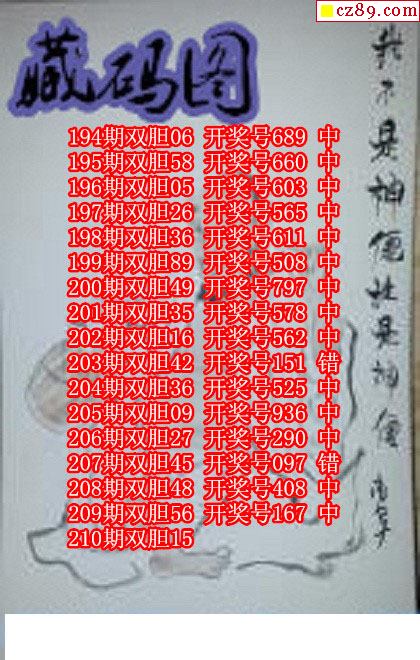 cz89.com
藏码图
194期双胆06 开奖号689 中
195期双胆58 开奖号660 中
196期双胆05 开奖号603 中
197期双胆26 开奖号565 中
198期双胆36 开奖号611 中
199期双胆89 开奖号508 中
200期双胆49 开奖号797 中
201期双胆35 开奖号578 中
202期双胆16 开奖号562 中
203期双胆42 开奖号151 错
204期双胆36 开奖号525 中
205期双胆09 开奖号936 中
206期双胆27 开奖号290 中
207期双胆45 开奖号097 错
208期双胆48 开奖号408 中
209期双胆56 开奖号167 中
210期双胆15
我不是神
是神